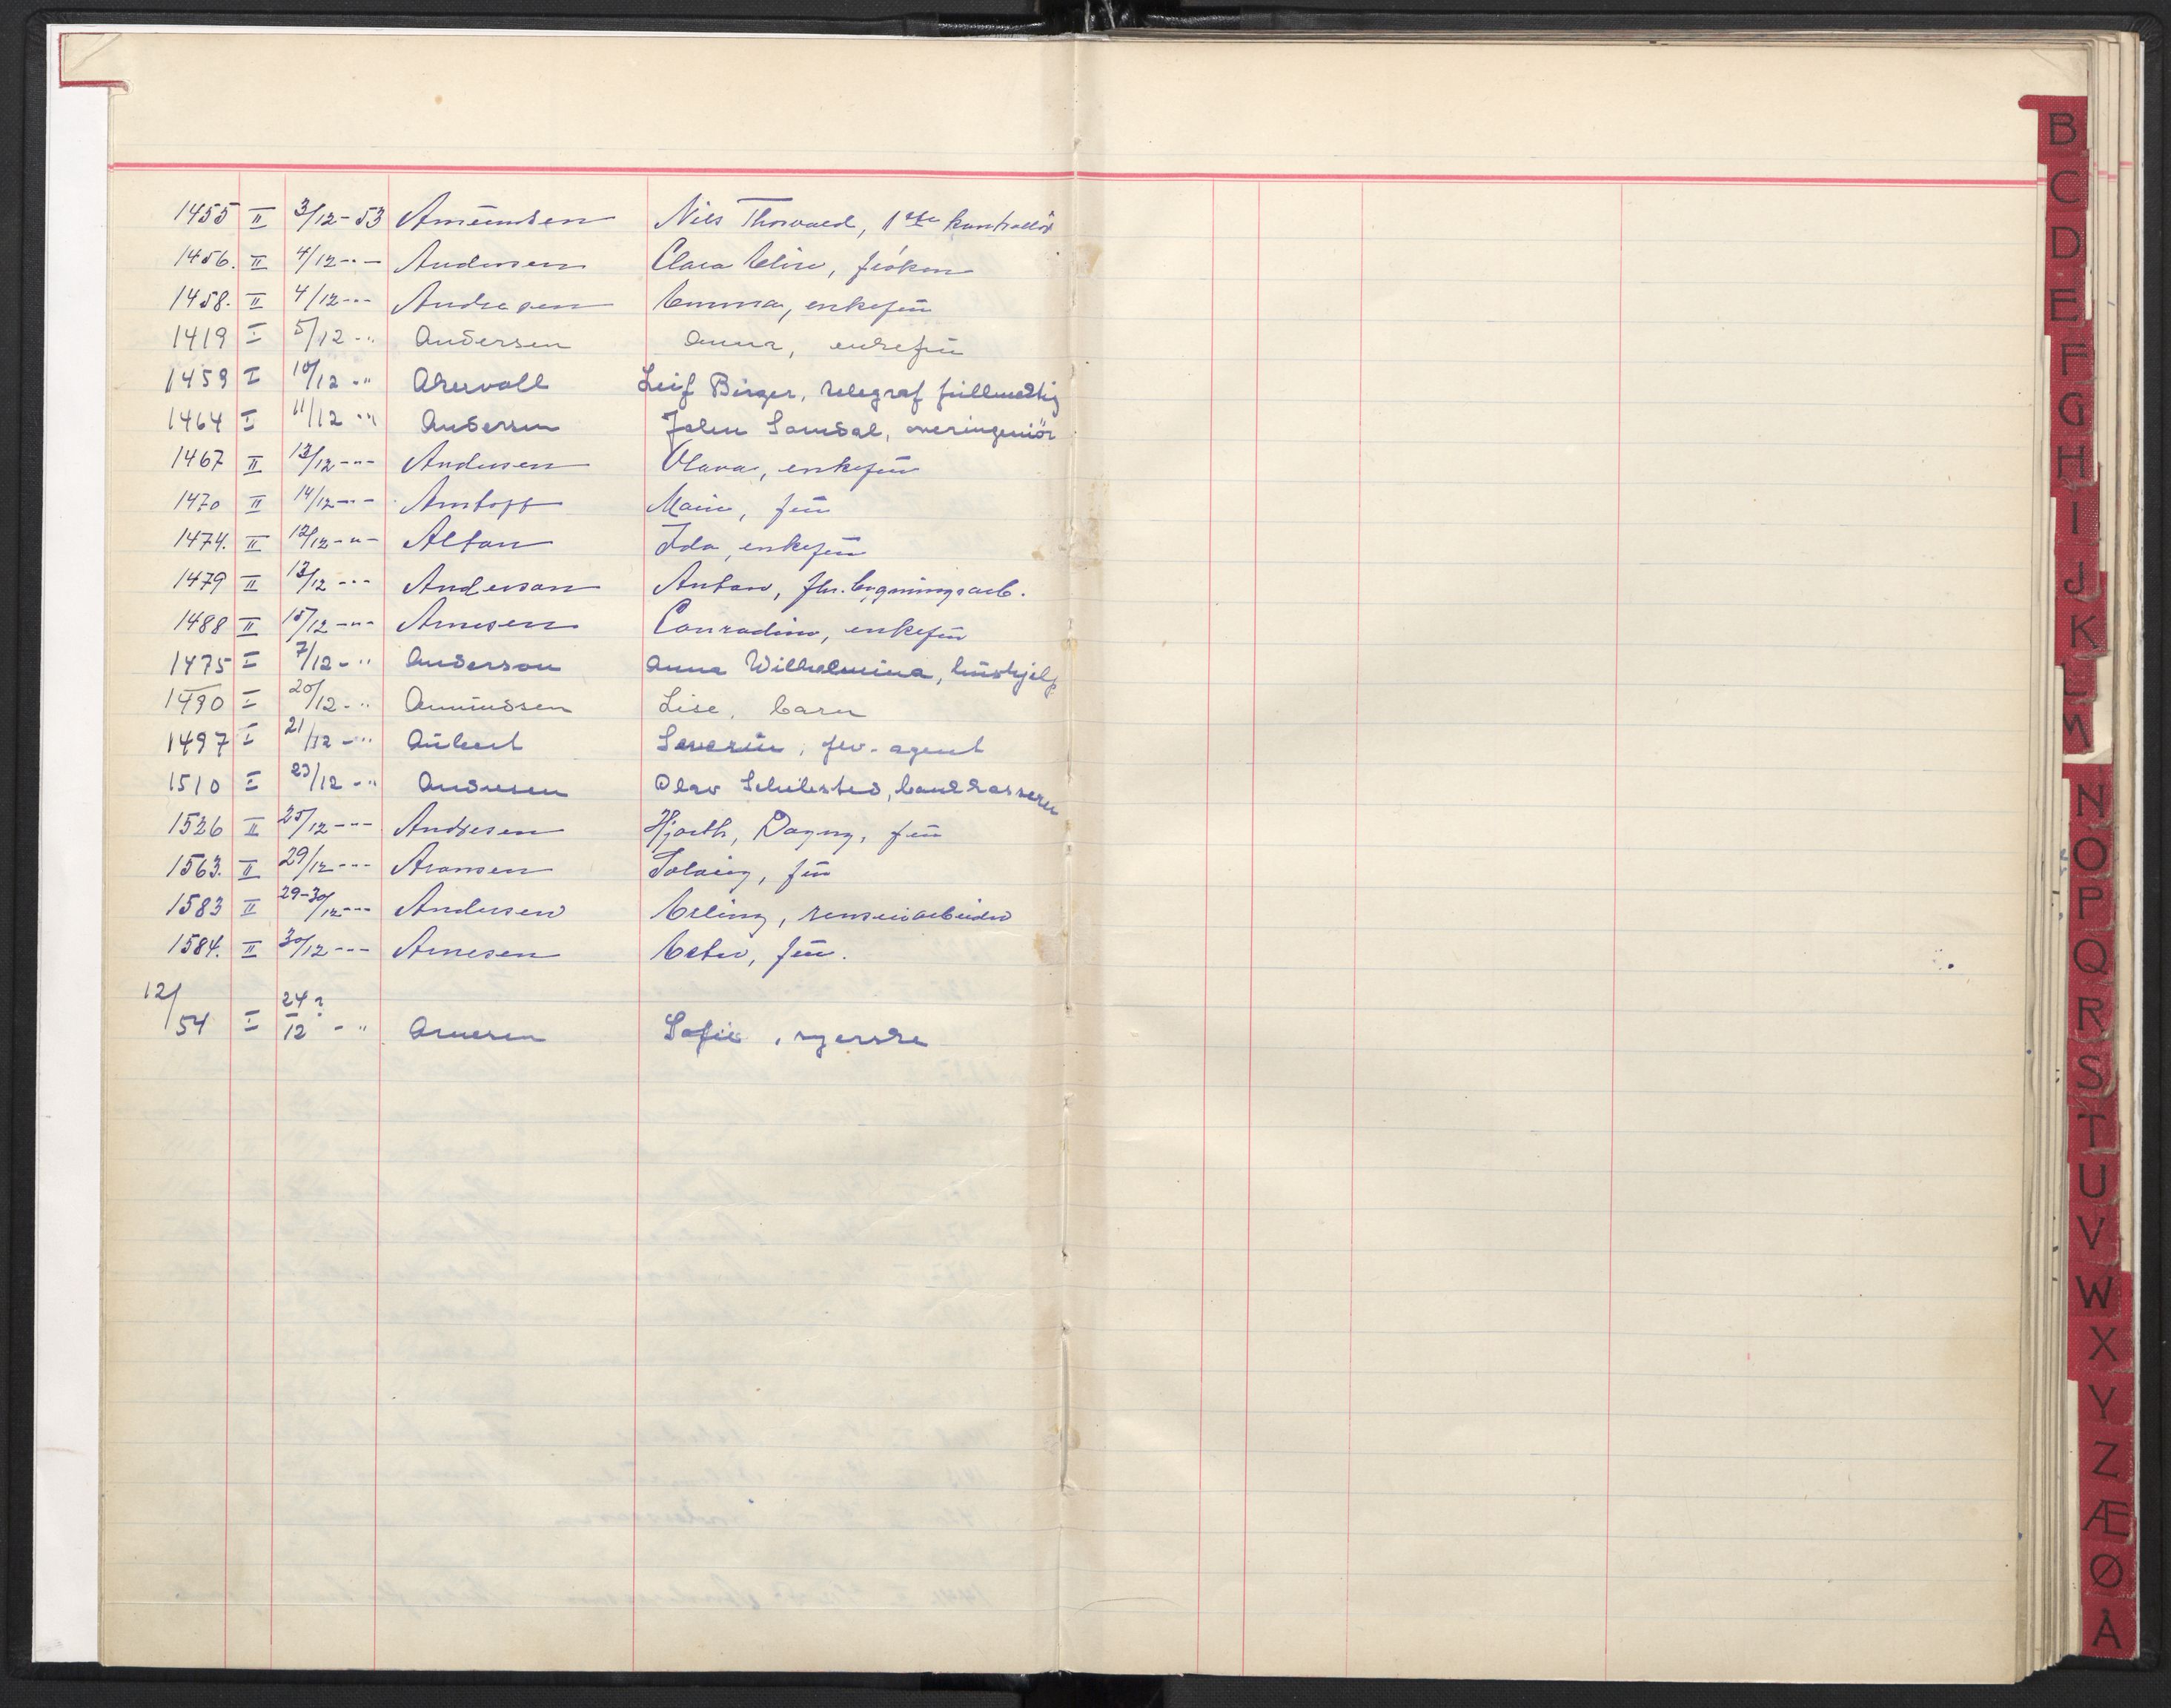 1455 II 3/12-53 Amundsen Nils Thorvald, 1ste kontrollør
1456. II 4/12 -"- Andersen Clara Elise, frøken
1458. II 4/12 -"- Andresen Emma, enkefru
1419 I 5/12 -" Andersen Anna, enkefru
1459 I 10/12 -" Akervoll Leif Birger, telegraffullmektig
1464 I 11/12 -" Andersen John Samdal, overingeniør
1467 II 13/12 -"- Andersen Olava, enkefru
1470 II 14/12 -"- Amtoft Marie, fru
1474. II 12/12 -"- Alfan Ida, enkefru
1479 II 13/12 -"- Anderson Anton, fhv. bygningsarb.
1488 II 15/12 -"- Arnesen Conradine, enkefru
1475 I 7/12 -" Anderson Anna Wilhelmina, hushjelp
1490 I 20/12 -" Amundsen Lise, barn
1497 I 21/12 -" Aubert Severin, fhv. agent
1510 I 23/12 -" Andresen Olav Schilsted, bankkasserer
1526 II 25/12 -"- Andresen Hjorth, Dagny, fru
1563. II 29/12 -"- Aronsen Solveig, fru
1583 II 29-30/12 -"- Andersen Erling, renseriarbeider
1584. II 30/12 -"- Arnesen Ester, fru.
12/54 I 24?/12 -" Arnesen Sofie, syerske
B
C
D
E
F
G
H
I
J
K
L
M
N
O
P
Q
R
S
T
U
V
W
X
Y
Z
Æ
Ø
Å